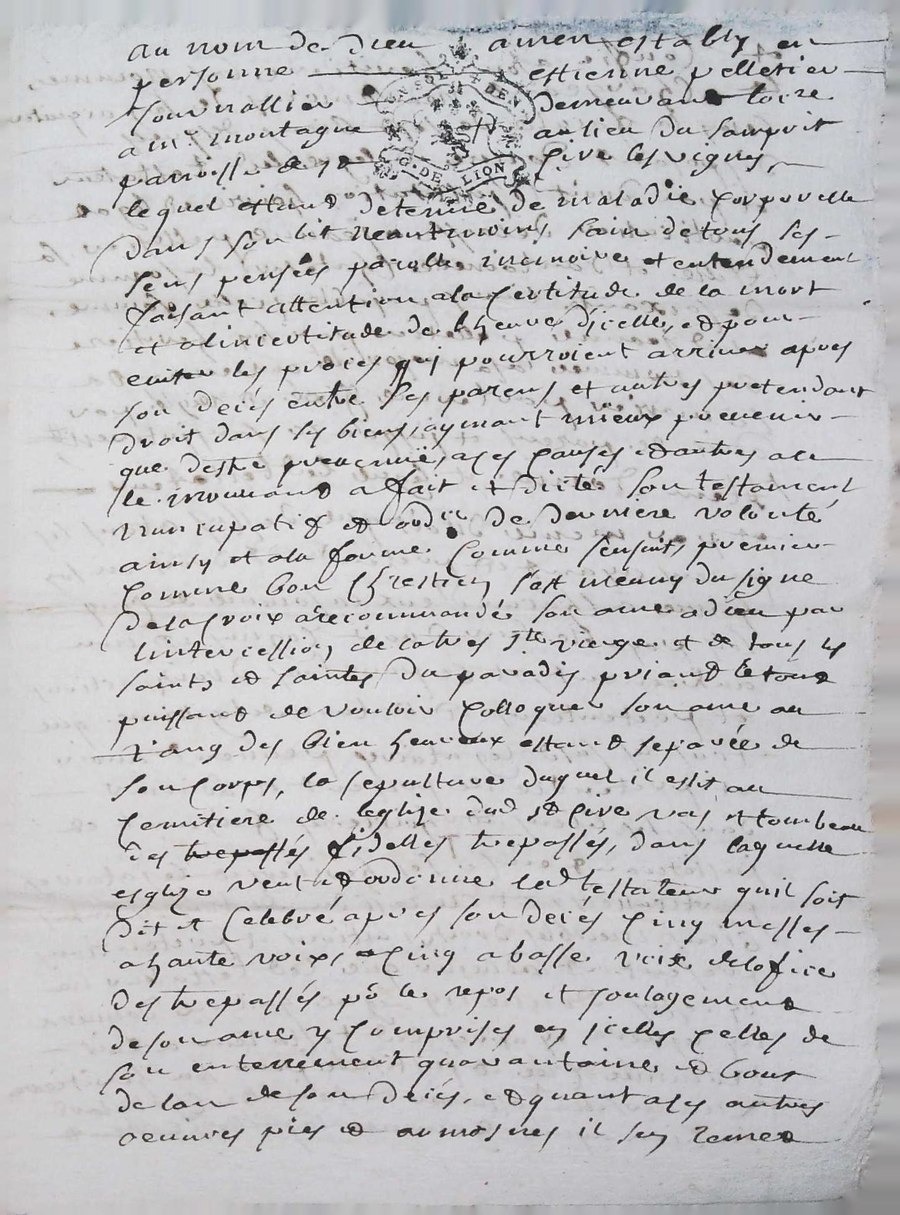 au nom de dieu amen estably en
personne estienne pelletier
journallier demeurant
a mr. montagne au lieu du
parroisse de st cire les vignes
lequel estant detenüe de maladie corporelle
dans son lit neantmoins sain de tous ses
sens pensées parolle memoire et entendement
faisant attention a la certitude de la mort
et a lincertitude de lheure dicelle, et pour
euiter les proces qui pourroient arriuer apres
son decés entre ses parens et autres pretendant
droit dans ses biens, aymant mieux preuenir
que destre preuenüe, a ces causes et autres a ce
le mouuant a fait et dicté son testament
nuncupatif et ordre de derniere volonté
ainsy et a la forme comme sensuit, premier
comme bon chrestien sest meuny du signe
de la croix a recommandé son ame a dieu par
lintercession de la tres ste vierge et de tous les
saints et saintes du paradis priant le tout
puissant de vouloir colloquer son ame au
rang des bien heureux estant separée de
son corps, la sepulture duquel il eslit au
cemitiere de leglize dud st cire vas et tombeau
des trepassés fidelles trepassés, dans laquelle
esglize veut et ordonne led testateur quil soit
dit et celebré apres son decés cinq messes
a haute voix, cinq a basse voix de lofice
des trepassés pr le repos et soulagement
de son ame y comprises en icelles celles de
son enterrement quarantaine et bout
de lan de son decés, et quant a ses autres
oeuures pies et aumosnes il sen remet
G. DE LION